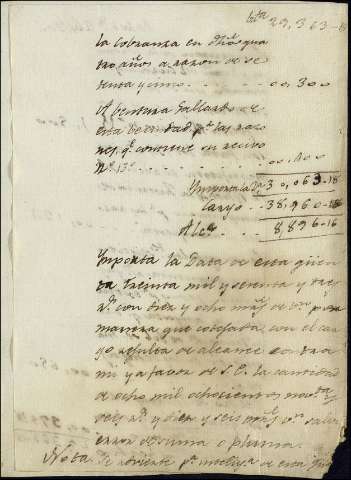 29,363-18
la cobranza en dhos qua
tro años a razon de se
tenta y cinco . . . . 00,300
A Bentura Gallardo de
esta Vecindad, pr las razo
nes qe contiene su recivo
No 13o . . . . 00,400
Ymporta la Da 30,063-18
Cargo . . 38,960-
Alce . . 8,896-16
Ymporta la Data de esta qüen
ta treinta mil y sesenta y tres
rs con diez y ocho mrs de vn por
manera que cotejada con el car
go resulta de alcance contra
mi y a favor de S.E. la cantidad
de ocho mil ochocientos nov.ta y
seis rs y diez y seis mrs vn salvo
error de suma o pluma.
Nota Se advierte pa intelig.a de esta